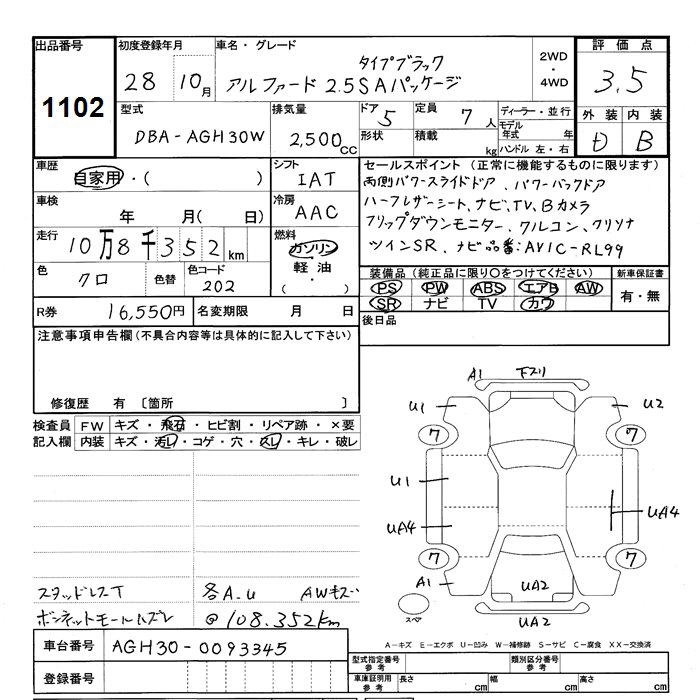 出品番号 初度登録年月 車名・グレード 評価点
1102
28 10月
タイプブラック
アルファード 2.5 SAパッケージ
2WD
・
4WD
3.5
型式 排気量 ドア 5 定員 7人 ディーラー・並行 外装 内装
DBA-AGH30W 2,500CC 形状 積載 kg モデル年式 年 ハンドル 左・右 D B
車歴 自家用・( ) シフト IAT
セールスポイント (正常に機能するものに限ります)
両側パワースライドドア、パワーバックドア
ハーフレザーシート、ナビ、TV、Bカメラ
フリップダウンモニター、クルコン、クリソナ
ツインSR、ナビ品番:AVIC-RL99
車検 年 月( 日) 冷房 AAC
走行 10万8千352km 燃料 ガソリン
軽油
・
( )
色 クロ 色替 色コード 202
装備品 (純正品に限り〇をつけてください) 新車保証書
PS PW ABS エアB AW 有・無
SR ナビ TV カワ
R券 16,550円 名変期限 月 日
後日品
注意事項申告欄(不具合内容等は具体的に記入して下さい)
修復歴 有 〔箇所 〕
検査員 FW キズ・飛石・ヒビ割・リペア跡・×要
記入欄 内装 キズ・汚レ・コゲ・穴・スレ・キレ・破レ
スタッドレスT 各A.U
ボンネットモールハズレ @108,352km
A1 下スリ
U1 U2
7 7
U1
UA4 UA4
7 7
A1 UA2
スペア UA2
A-キズ E-エクボ U-凹み W-補修跡 S-サビ C-腐食 XX-交換済
車台番号 AGH30-0093345
登録番号
型式指定番号 参考 類別区分番号 参考
車庫証明用 参考 長さ cm 幅 cm 高さ cm